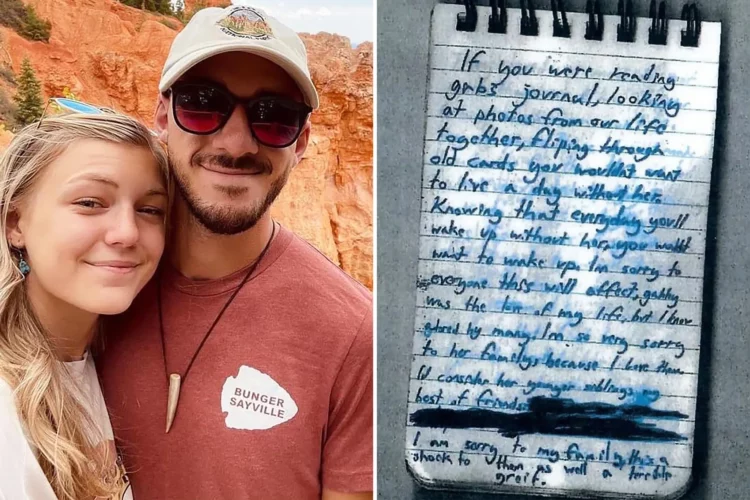 BUNGER
SAYVILLE
If you were reading
gabs journal, looking
at photos from our life
together, fliping through
old cards you wouldnt want
to live a day without her.
Knowing that everyday you'll
wake up without her, you wouldnt
want to wake up. I'm sorry to
everyone this will affect, gabby
was the love of my life, but I know
adored by many. I'm so very sorry
to her family, because I love them.
I'd consider her younger siblings my
best of friends.
I am sorry to my family, this is a
shock to them as well a terrible
greif.